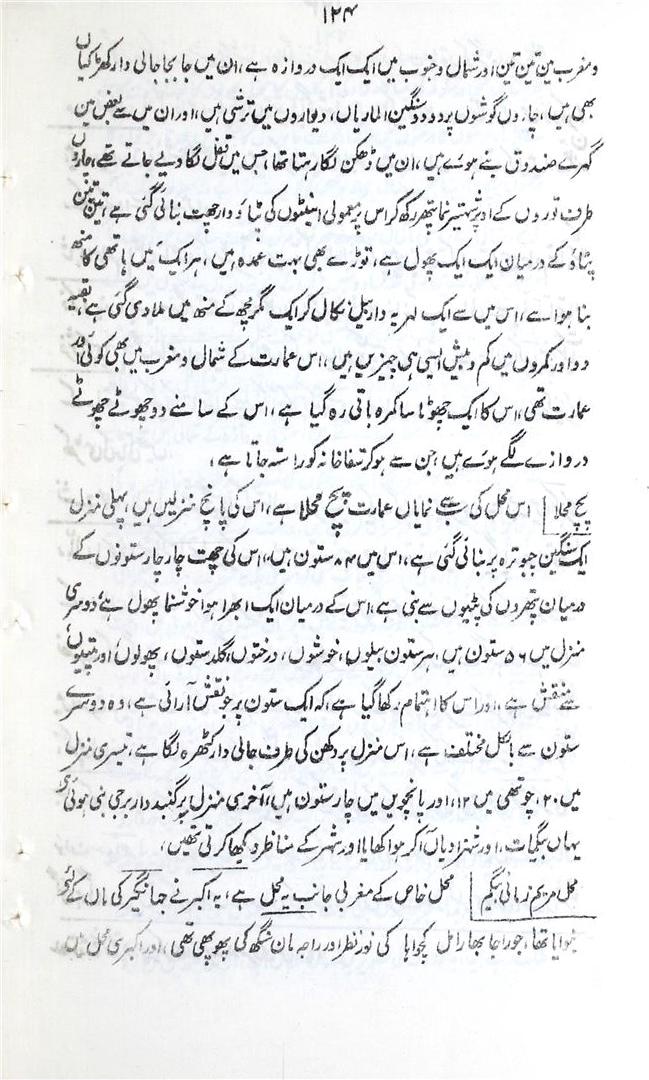 ۱۲۴
ومغرب مین تین تین اور شمال و جنوب میں ایک ایک دروازہ ہے، ان میں جا بجا جالی دار کھڑکیاں
بھی ہیں، چاروں گوشوں پر دو دو سنگین الماریاں، دیواروں میں ترشی ہیں، اور ان میں سے بعض مین
گہرے صندوق بنے ہوئے ہیں، ان میں ڈھکن لگا رہتا تھا، جس میں قفل لگا دیے جاتے تھے، چاروں
طرف توڑوں کے اوپر شہتیر نما پتھر رکھ کر اس پر معمولی اینٹوں کی پٹاؤ دار چھت بنائی گئی ہے، تین تین
پٹاؤ کے درمیان ایک ایک پھول ہے، توڑے بھی بہت عمدہ ہیں، ہر ایک میں ہاتھی کا منھ
بنا ہوا ہے، اس میں سے ایک لہریہ دار بیل نکال کر ایک مگرمچھ کے منھ میں ملا دی گئی ہے، بقیہ
دو اور کمروں میں کم و بیش ایسی ہی چیزیں ہیں، اس عمارت کے شمال و مغرب میں بھی کوئی اور
عمارت تھی، اس کا ایک چھوٹا سا کمرہ باقی رہ گیا ہے، اس کے سامنے دو چھوٹے چھوٹے
دروازے لگے ہوئے ہیں، جن سے ہو کر شفاخانہ کو راستہ جاتا ہے،
پچ محلا اس محل کی سب سے نمایاں عمارت پچ محلا ہے، اس کی پانچ منزلیں ہیں، پہلی منزل
ایک سنگین چبوترہ پر بنائی گئی ہے، اس میں ۸۴ ستون ہیں، اس کی چھت چار چار ستونوں کے
درمیان پتھروں کی پٹیوں سے بنی ہے، اس کے درمیان ایک ابھرا ہوا خوشنما پھول ہے، دوسری
منزل میں ۵۶ ستون ہیں، ہر ستون بیلوں، خوشوں، درختوں، گلدستوں، پھولوں، اور پتیوں
سے منقش ہے، اور اس کا اہتمام رکھا گیا ہے، کہ ایک ستون پر جو نقش آرائی ہے، وہ دوسرے
ستون سے بالکل مختلف ہے، اس منزل پر دکھن کی طرف جالی دار کٹھرہ لگا ہے، تیسری منزل
میں ۲۰، چوتھی میں ۱۲، اور پانچویں میں چار ستون ہیں، آخری منزل پر گنبد دار برجی بنی ہوئی ہے،
یہاں بیگمات، اور شہزادیاں آکر ہوا کھایا اور شہر کے مناظر دیکھا کرتی تھیں،
محل مریم زمانی بیگم محل خاص کے مغربی جانب یہ محل ہے، یہ اکبر نے جہانگیر کی ماں کے لئے
بنوایا تھا، جو راجا بھارا مل کچواہا کی نور نظر اور راجہ مان سنگھ کی پھوپھی تھی، اور اکبری محل میں